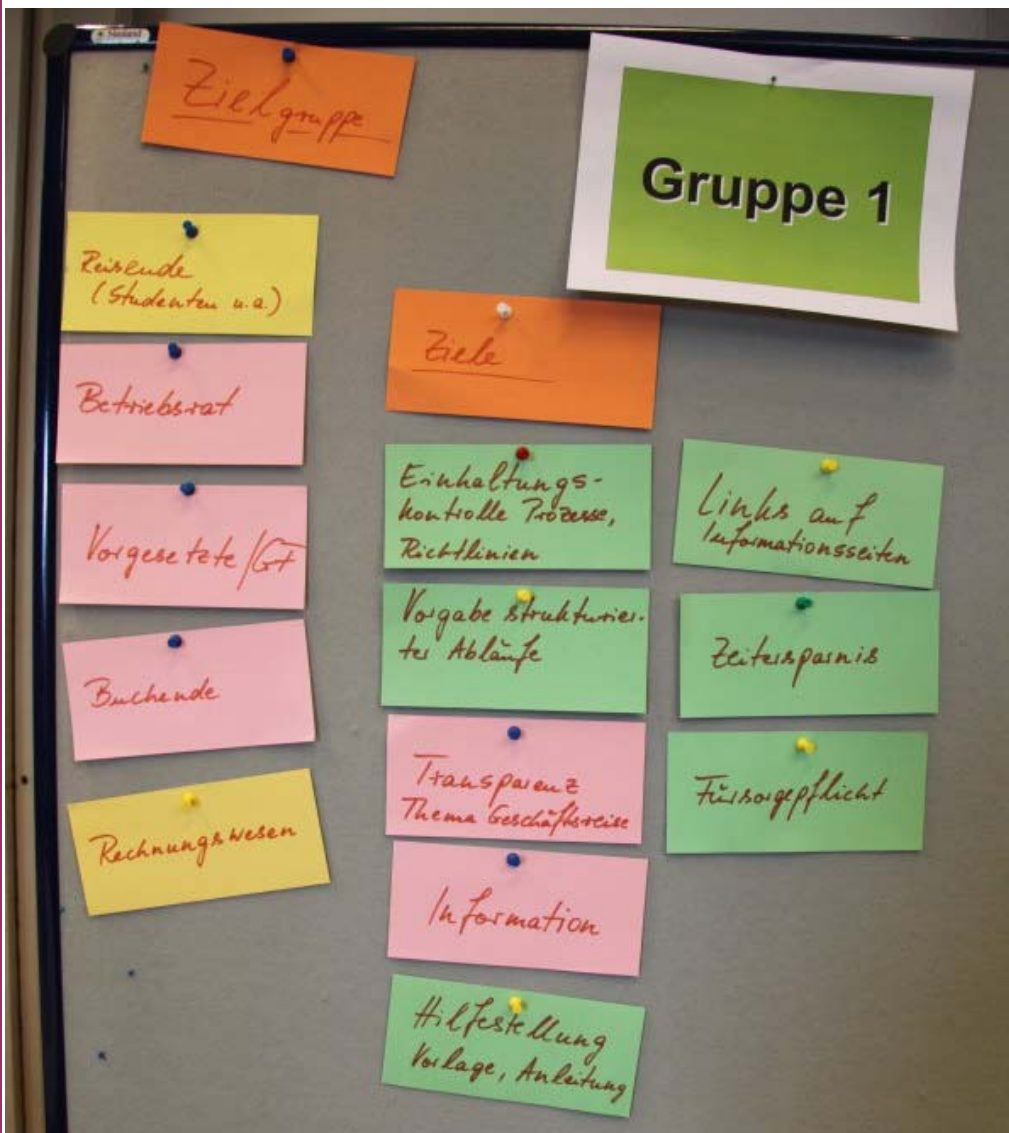 Zielgruppe
Gruppe 1
Reisende
(Studenten u.a.)
Betriebsrat
Vorgesetzte/GF
Buchende
Rechnungswesen
Ziele
Einhaltungs-
kontrolle Prozesse,
Richtlinien
Vorgabe strukturier-
ter Abläufe
Transparenz
Thema Geschäftsreise
Information
Hilfestellung
Vorlage, Anleitung
Links auf
Informationsseiten
Zeitersparnis
Fürsorgepflicht